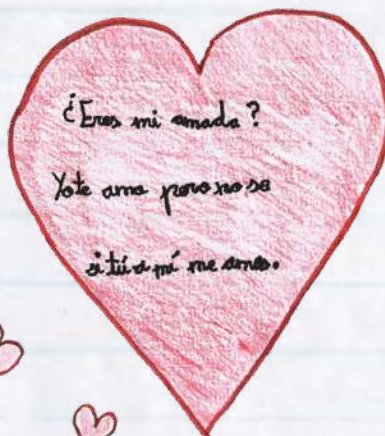 ¿Eres mi amada?
Yo te amo pero no se
si tú a mí me amas.